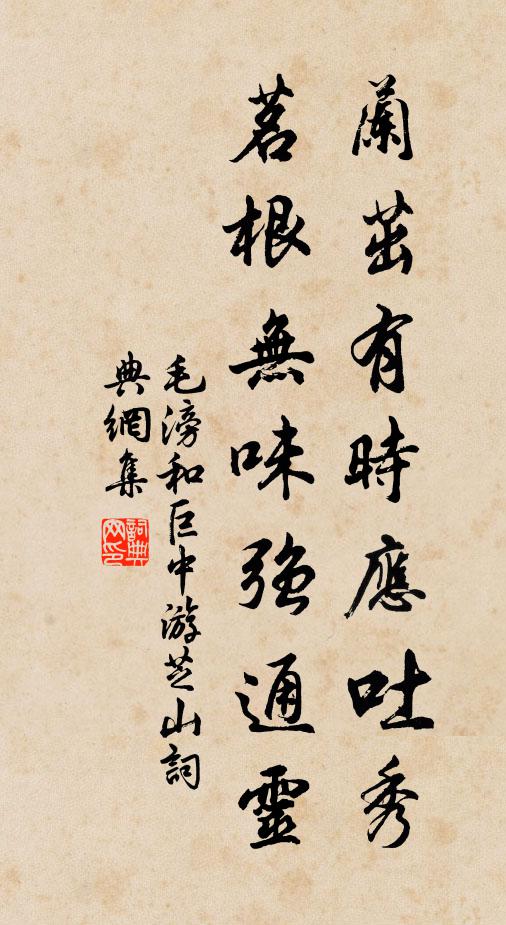 蘭茁有時應吐秀
茗根無味強通靈
毛滂和巨中游芝山詞
典網集
詞典网印